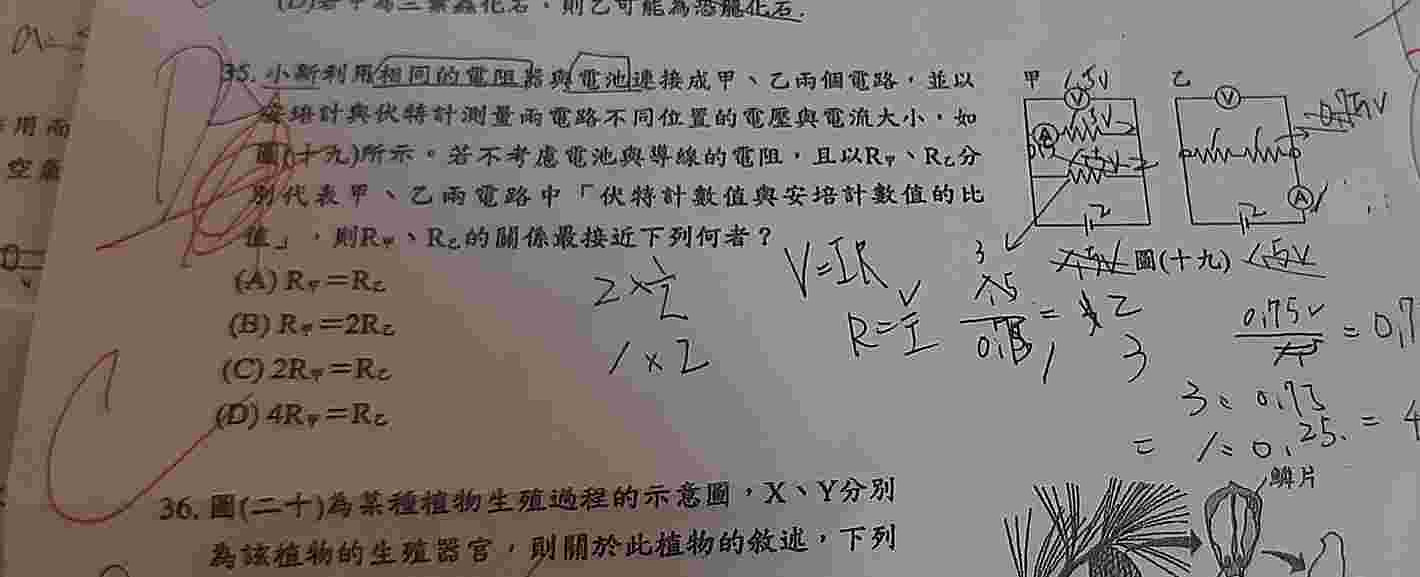 (D)若甲為三葉蟲化石，則乙可能為恐龍化石.
a=
用而
空氣
35. 小新利用相同的電阻器與電池連接成甲、乙兩個電路，並以
安培計與伏特計測量兩電路不同位置的電壓與電流大小，如
圖(十九)所示。若不考慮電池與導線的電阻，且以R甲、R乙分
別代表甲、乙兩電路中「伏特計數值與安培計數值的比
值」，則R甲、R乙的關係最接近下列何者？
(A) R甲＝R乙
(B) R甲＝2R乙
(C) 2R甲＝R乙
(D) 4R甲＝R乙
C
甲 1.5V
V
A
乙
V
A
0.75V
圖(十九) 1.5V
2×1/2
1×2
V=IR
R=V/I
3
= 2
1 3
0.75V = 0.7
3: 0.75
= 1: 0.25. = 4
36. 圖(二十)為某種植物生殖過程的示意圖，X、Y分別
為該植物的生殖器官，則關於此植物的敘述，下列
鱗片